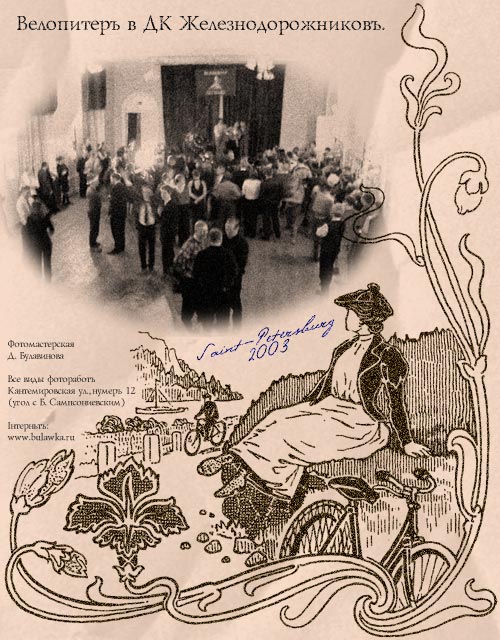 Велопитеръ в ДК Железнодорожниковъ.
Saint-Petersburg
2003
Фотомастерская
Д. Булавинова
Все виды фотоработъ
Кантемировская ул., нумеръ 12
(угол с Б. Сампсониевским)
Інтернътъ:
www.bulawka.ru